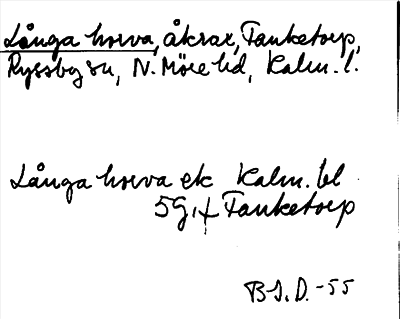 Långa horva, åkrar, Tanketorp,
Ryssby sn, N. Möre hd, Kalm. l.
Långa horva ek Kalm. bl
59, + Tanketorp
B I. D. -55